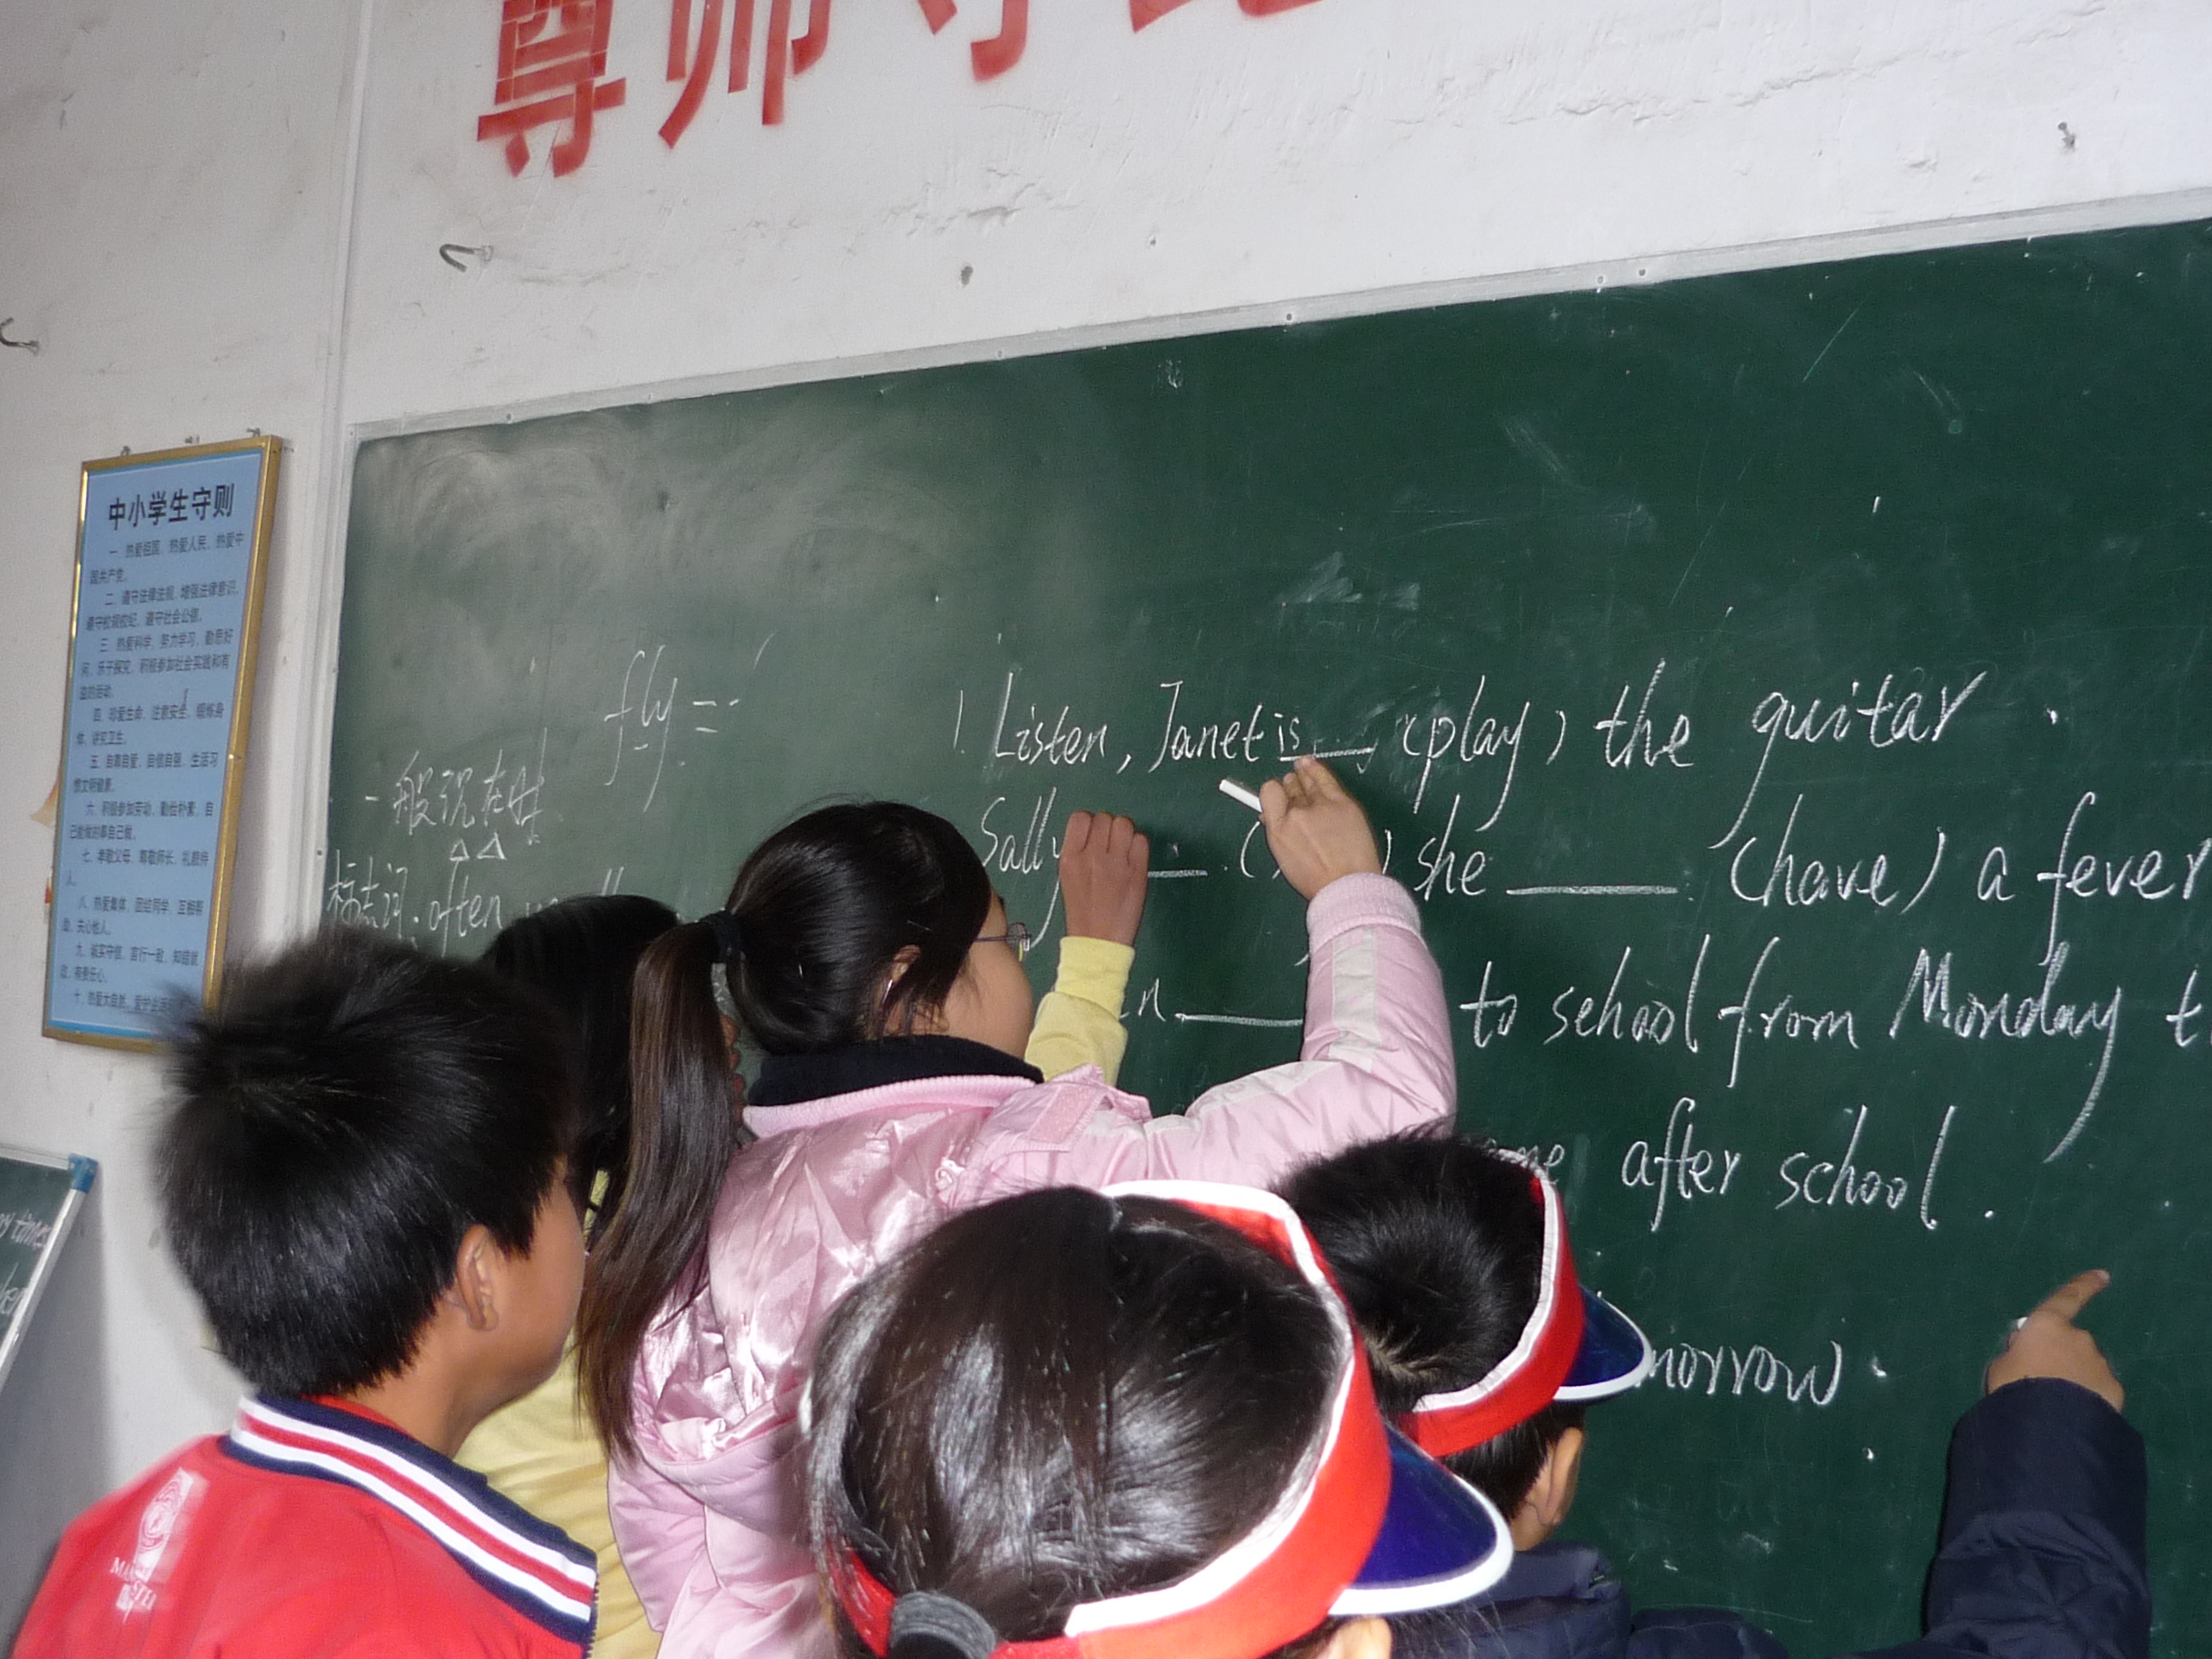 尊师守纪
中小学生守则
一、热爱祖国，热爱人民，热爱中
国共产党。
二、遵守法律法规，增强法律意识。
遵守校规校纪，遵守社会公德。
三、热爱科学，努力学习，勤思好
问，乐于探究，积极参加社会实践和有
益的活动。
四、珍爱生命，注意安全，锻炼身
体，讲究卫生。
五、自尊自爱，自信自强，生活习
惯文明健康。
六、积极参加劳动，勤俭朴素，自
己能做的事自己做。
七、孝敬父母，尊敬师长，礼貌待
人。
八、热爱集体，团结同学，互相帮
助，关心他人。
九、诚实守信，言行一致，知错就
改，有责任心。
十、热爱大自然，爱护生活
fly =
一般现在时
标志词: often
1. Listen, Janet is ___ (play) the guitar.
Sally ___ ( ) she ___ (have) a fever
___ to school from Monday
after school.
morrow.